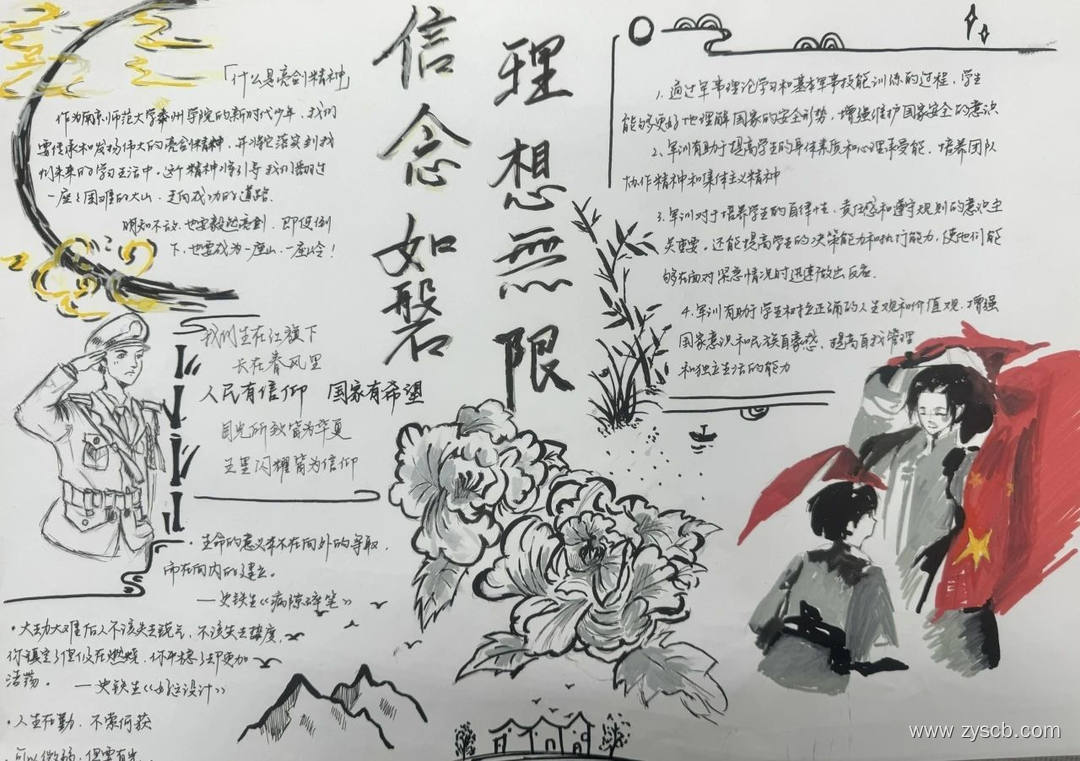 信念如磐
理想無限
「什么是亮剑精神」
作为南京师范大学泰州学院的新时代少年，我们
要传承和发扬伟大的亮剑精神，并将它落实到我
们未来的学习生活中，这个精神将引导我们翻过
一座座困难的大山，走向成功的道路.
明知不敌，也要毅然亮剑，即使倒
下，也要成为一座山，一座岭！
我们生在红旗下
长在春风里
人民有信仰 国家有希望
目光所致皆为华夏
五星闪耀皆为信仰
·生命的意义本不在向外的寻取，
而在向内的建立。
——史铁生《病隙碎笔》
·大劫大难后人不该失去锐气，不该失去热度，
你镇定了但仍在燃烧，你平稳了却更加
浩荡。 ——史铁生《好运设计》
·人生在勤，不索何获
1. 通过军事理论学习和基本军事技能训练的过程，学生
能够更好地理解国家的安全形势，增强维护国家安全的意识
2. 军训有助于提高学生的身体素质和心理承受能，培养团队
协作精神和集体主义精神
3. 军训对于培养学生的自律性，责任感和遵守规则的意识至
关重要，还能提高学生的决策能力和执行能力，使他们能
够在面对紧急情况时迅速做出反应.
4. 军训有助于学生树立正确的人生观和价值观，增强
国家意识和民族自豪感，提高自我管理
和独立生活的能力
www.zyscb.com